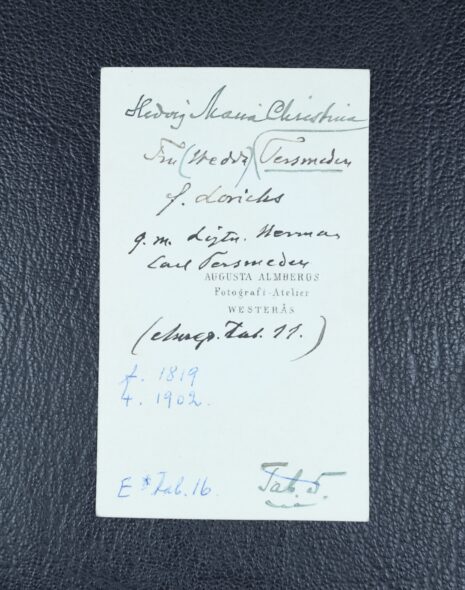 Hedvig Maria Christina
Fru (Hedda) Tersmeden
f. Lorichs
g.m. Löjtn. Herman
Carl Tersmeden
AUGUSTA ALMBERGS
Fotografi-Atelier
WESTERÅS
Tab. 11.)
f. 1819
†. 1902.
E * Tab. 16.
Tab. 5.